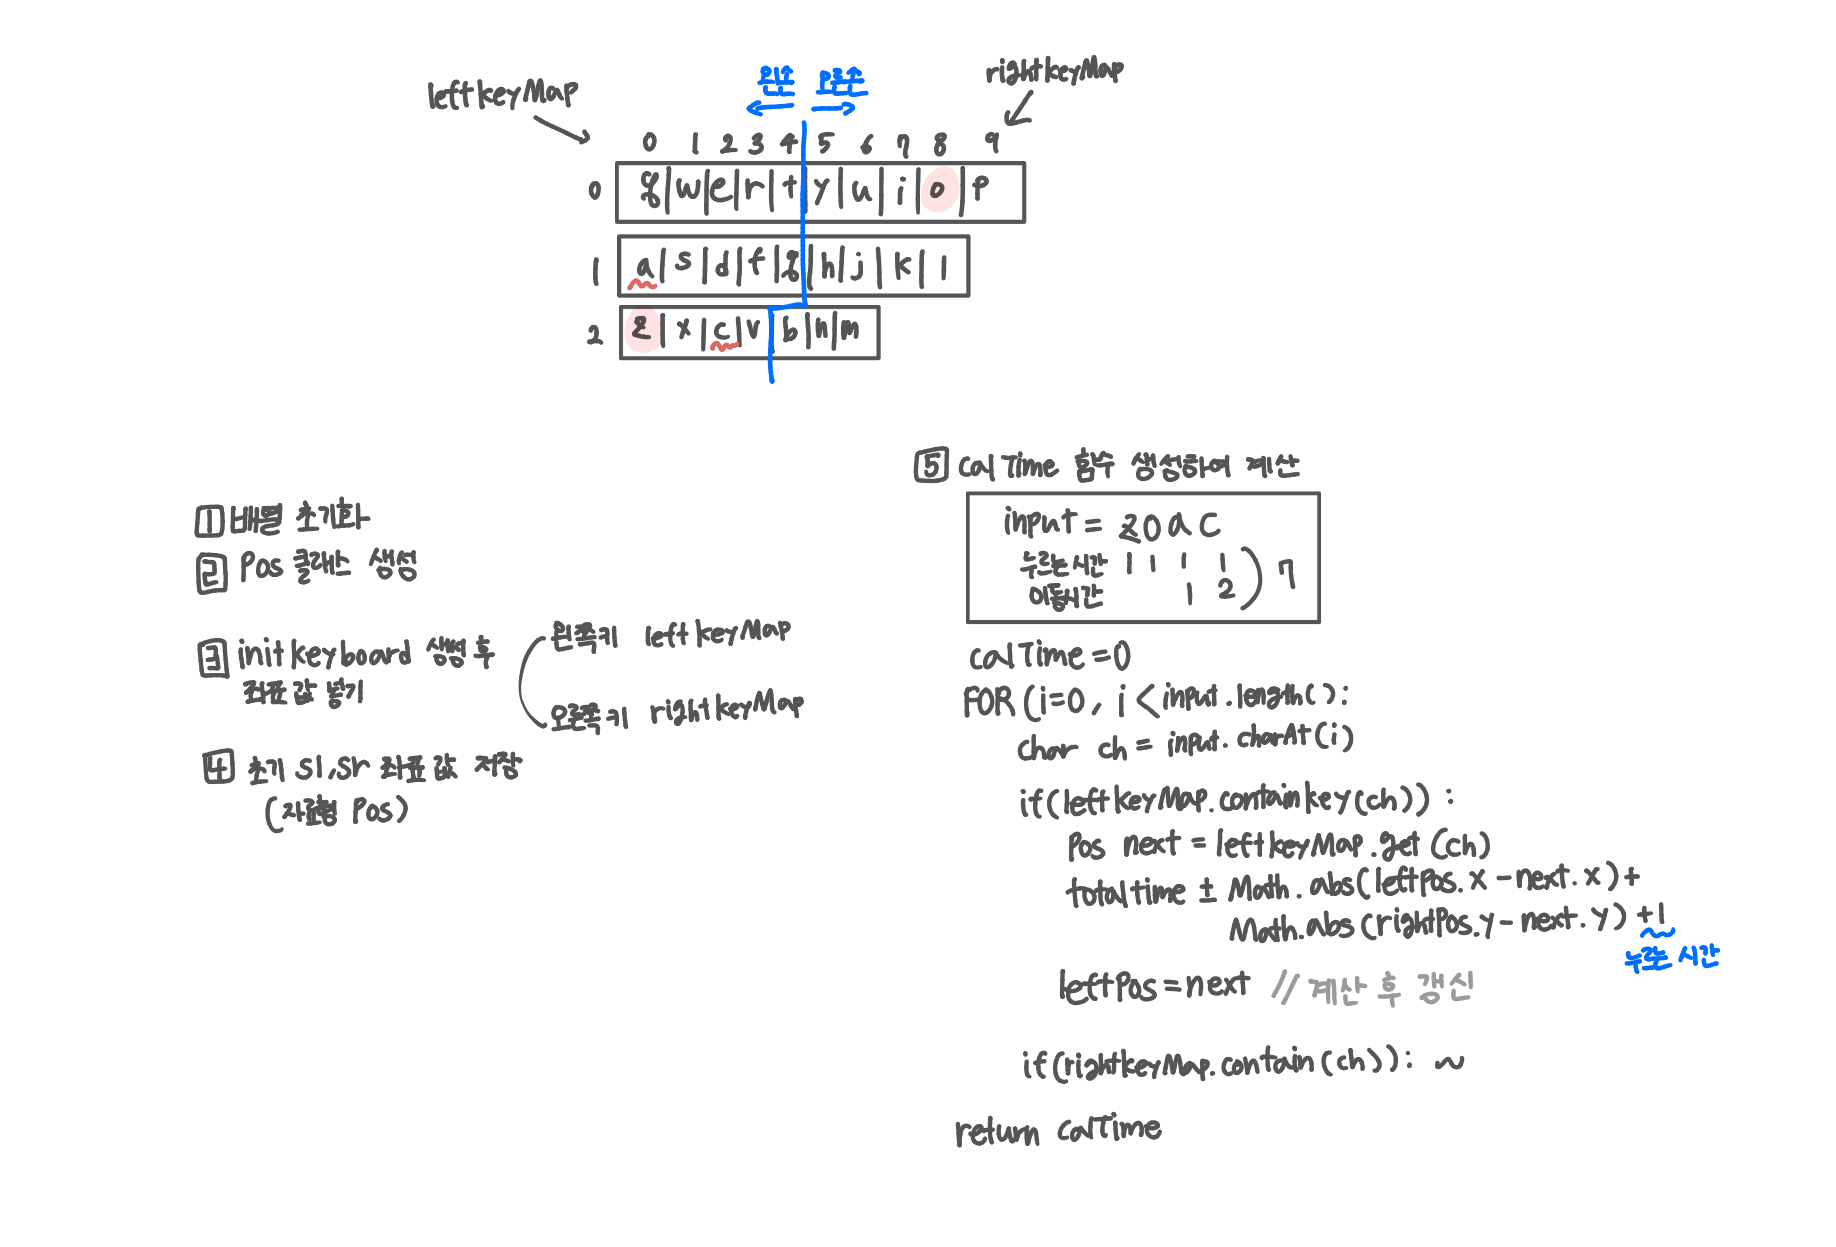 leftkeyMap
왼손 오른손
rightkeyMap
0 1 2 3 4 5 6 7 8 9
0 q|w|e|r|t|y|u|i|o|p
1 a|s|d|f|g|h|j|k|l
2 z|x|c|v|b|n|m
1 배열 초기화
2 Pos 클래스 생성
3 initkeyboard 생성 후
좌표 값 넣기
왼쪽키 leftkeyMap
오른쪽키 rightkeyMap
4 초기 sl,sr 좌표 값 저장
(자료형 Pos)
5 calTime 함수 생성하여 계산
input = zoac
누르는 시간 1 1 1 1
이동시간 1 2
) 7
calTime=0
FOR (i=0, i<input.length():
char ch = input.charAt(i)
if(leftkeyMap.containkey(ch)):
Pos next = leftkeyMap.get(ch)
totaltime ± Math.abs(leftPos.x-next.x)+
Math.abs(rightPos.y-next.y) +1
누르는 시간
leftPos=next // 계산 후 갱신
if(rightkeyMap.contain(ch)): ~
return calTime